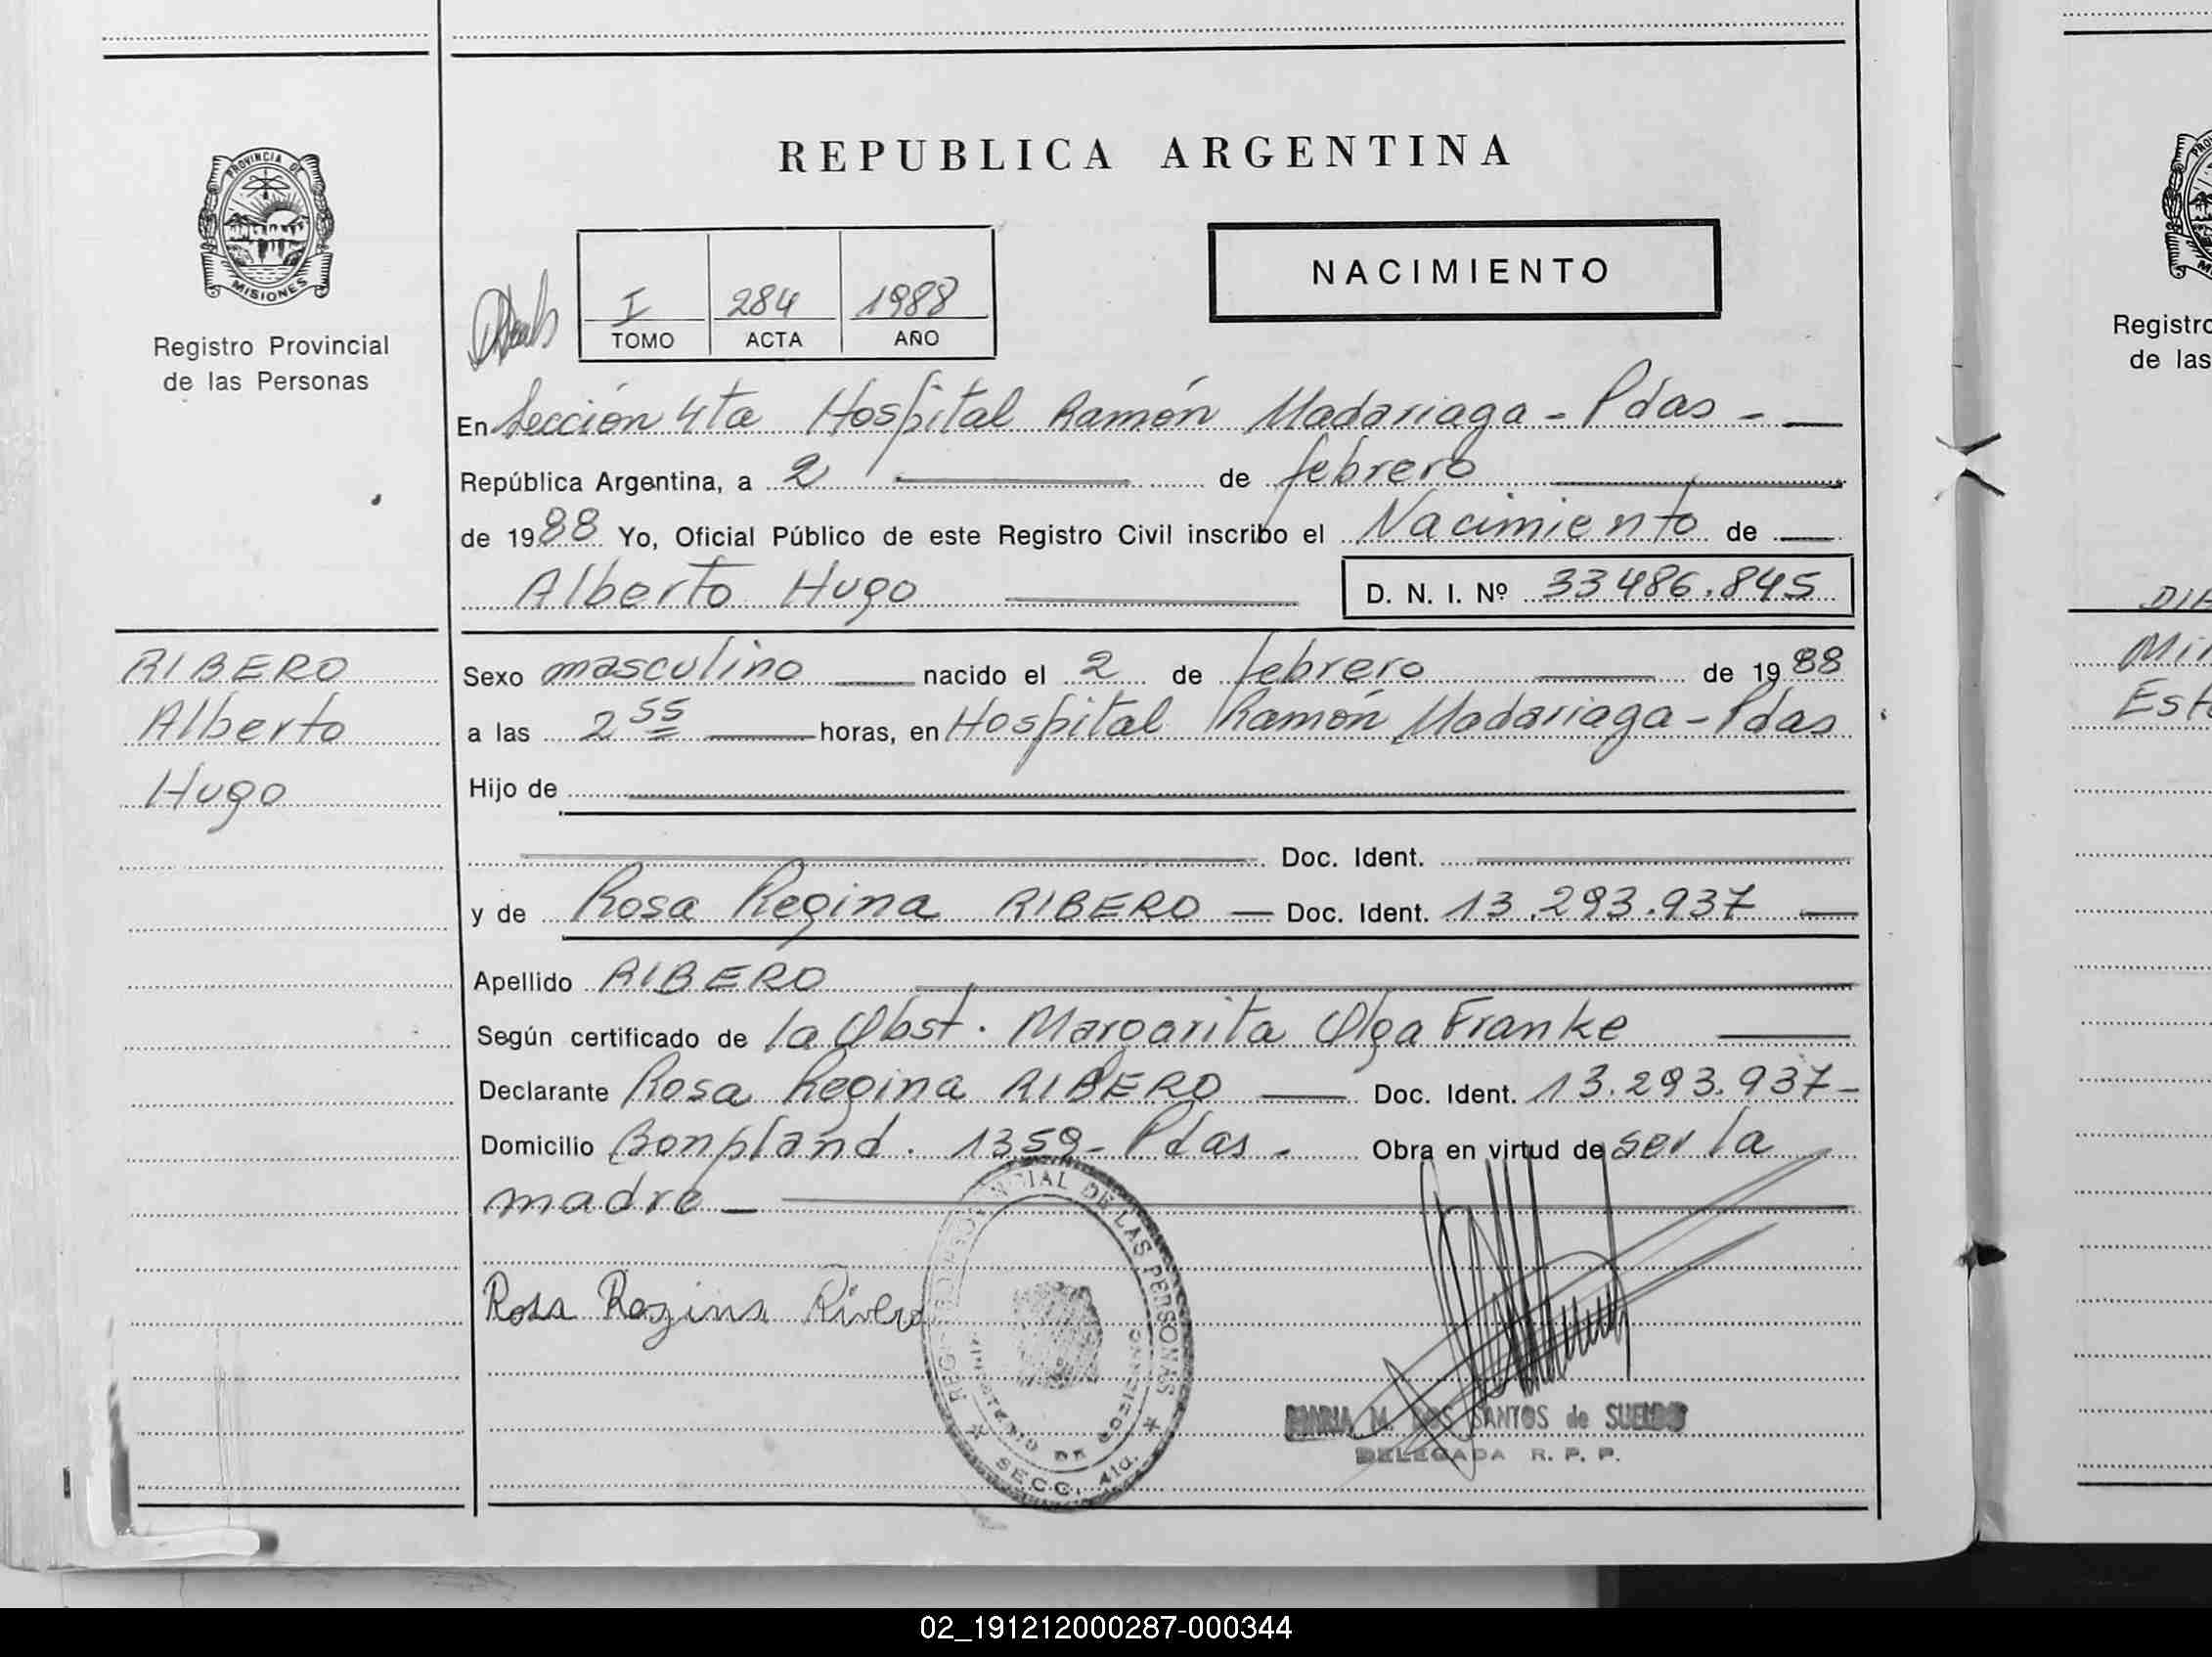 REPUBLICA ARGENTINA
PROVINCIA DE
MISIONES
Registro Provincial
de las Personas
I 284 1988
TOMO ACTA AÑO
NACIMIENTO
En Sección 4ta Hospital Ramón Madariaga - Pdas -
República Argentina, a 2 de febrero
de 1988 Yo, Oficial Público de este Registro Civil inscribo el Nacimiento de
Alberto Hugo D. N. I. Nº 33486.845
RIBERO
Alberto
Hugo
Sexo masculino nacido el 2 de febrero de 1988
a las 2 55 horas, en Hospital Ramón Madariaga - Pdas
Hijo de
Doc. Ident.
y de Rosa Regina RIBERO — Doc. Ident. 13.293.937
Apellido RIBERO
Según certificado de la Obst. Margarita Olga Franke
Declarante Rosa Regina RIBERO — Doc. Ident. 13.293.937-
Domicilio Bonpland. 1359- Pdas - Obra en virtud de ser la
madre
Rosa Regina Rivero
REGISTRO PROVINCIAL DE LAS PERSONAS
MINISTERIO DE GOBIERNO
SECC. 4ta.
MARIA M. DOS SANTOS de SUELDO
DELEGADA R. P. P.
Registro
de las
Est
02_191212000287-000344